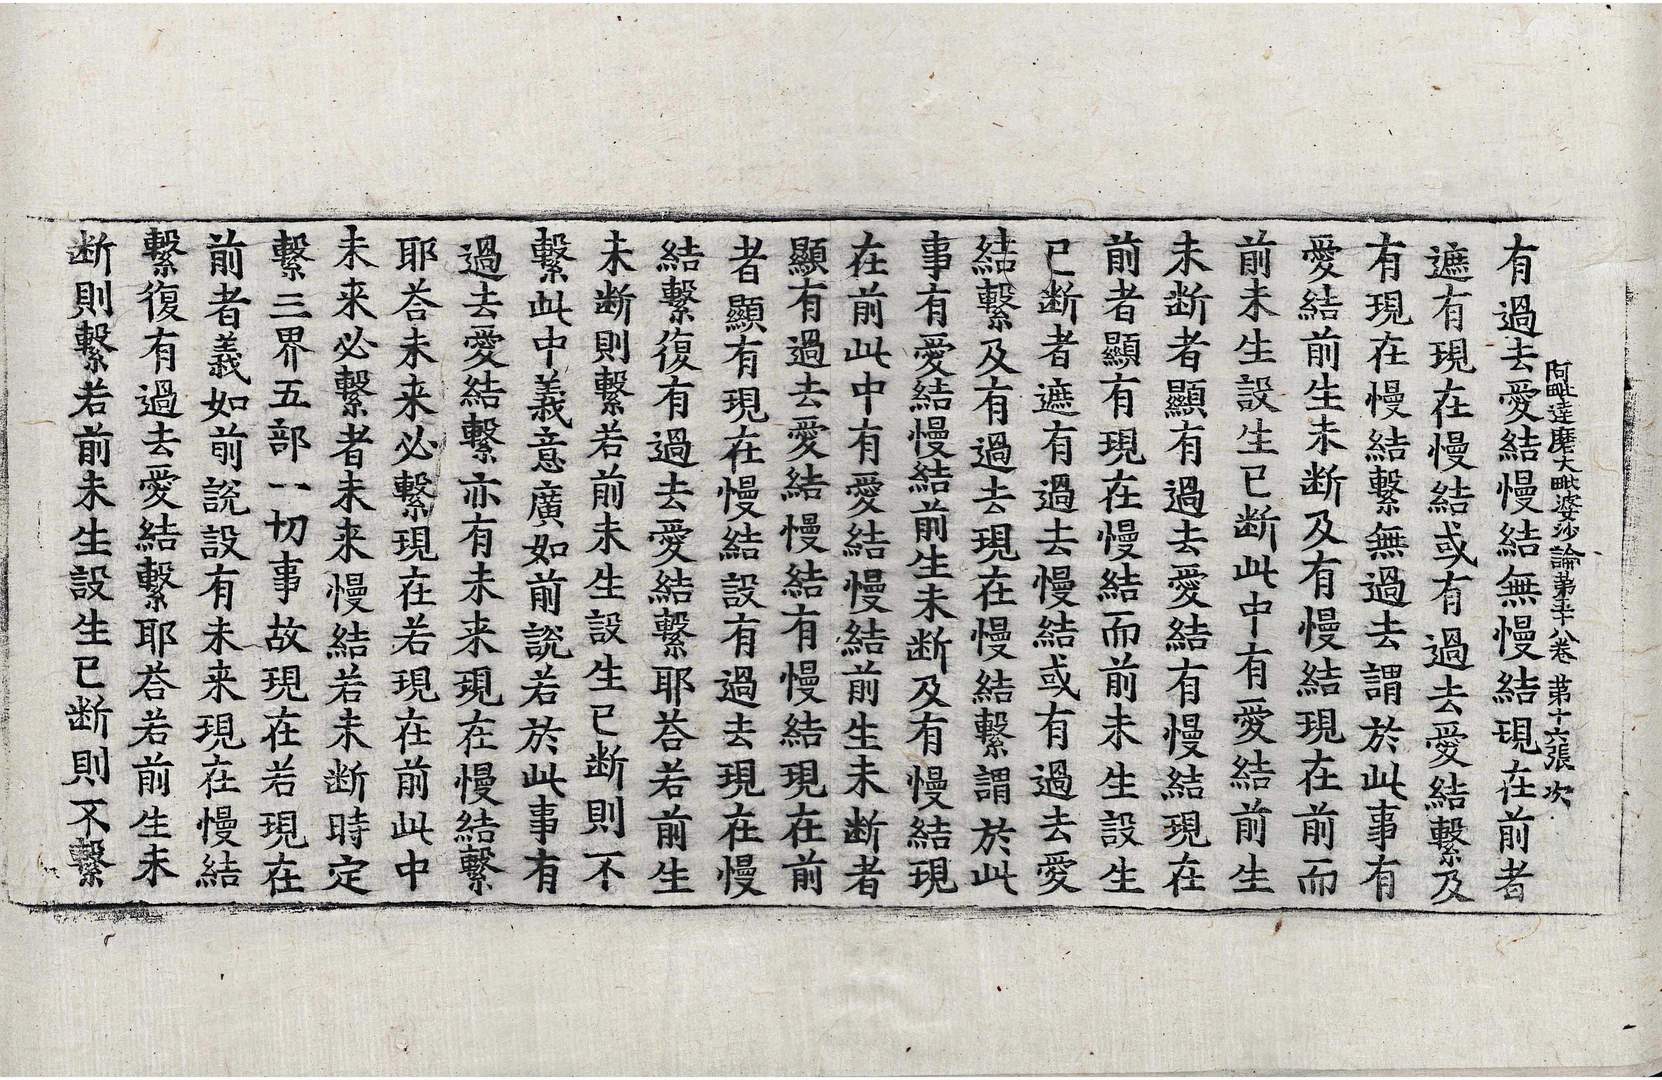 阿毗達磨大毗婆沙論第五十八卷　第十六張　次
有過去愛結慢結無慢結現在前者
遮有現在慢結或有過去愛結繫及
有現在慢結繫無過去謂於此事有
愛結前生未断及有慢結現在前而
前未生設生已断此中有愛結前生
未断者顯有過去愛結有慢結現在
前者顯有現在慢結而前未生設生
已断者遮有過去慢結或有過去愛
結繫及有過去現在慢結繫謂於此
事有愛結慢結前生未断及有慢結現
在前此中有愛結慢結前生未断者
顯有過去愛結慢結有慢結現在前
者顯有現在慢結設有過去現在慢
結繫復有過去愛結繫耶荅若前生
未断則繫若前未生設生已断則不
繫此中義意廣如前說若於此事有
過去愛結繫亦有未来現在慢結繫
耶荅未来必繫現在若現在前此中
未来必繫者未来慢結若未断時定
繫三界五部一切事故現在若現在
前者義如前說設有未来現在慢結
繫復有過去愛結繫耶荅若前生未
断則繫若前未生設生已断則不繫